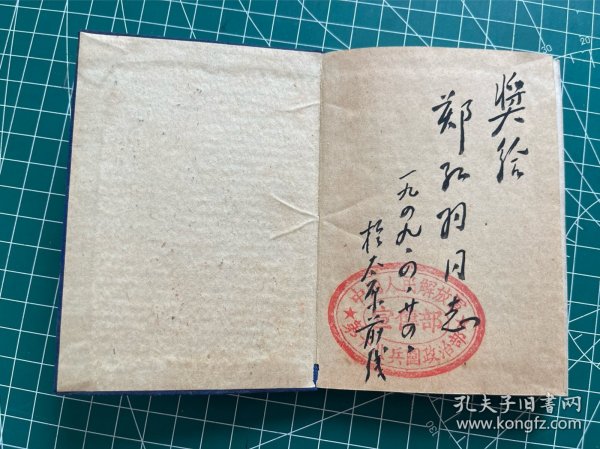 奖给
郑红羽同志
一九四九·四·廿四·
於太原前线
中国人民解放军
宣传部
第 兵团政治部
孔夫子旧书网
www.kongfz.com